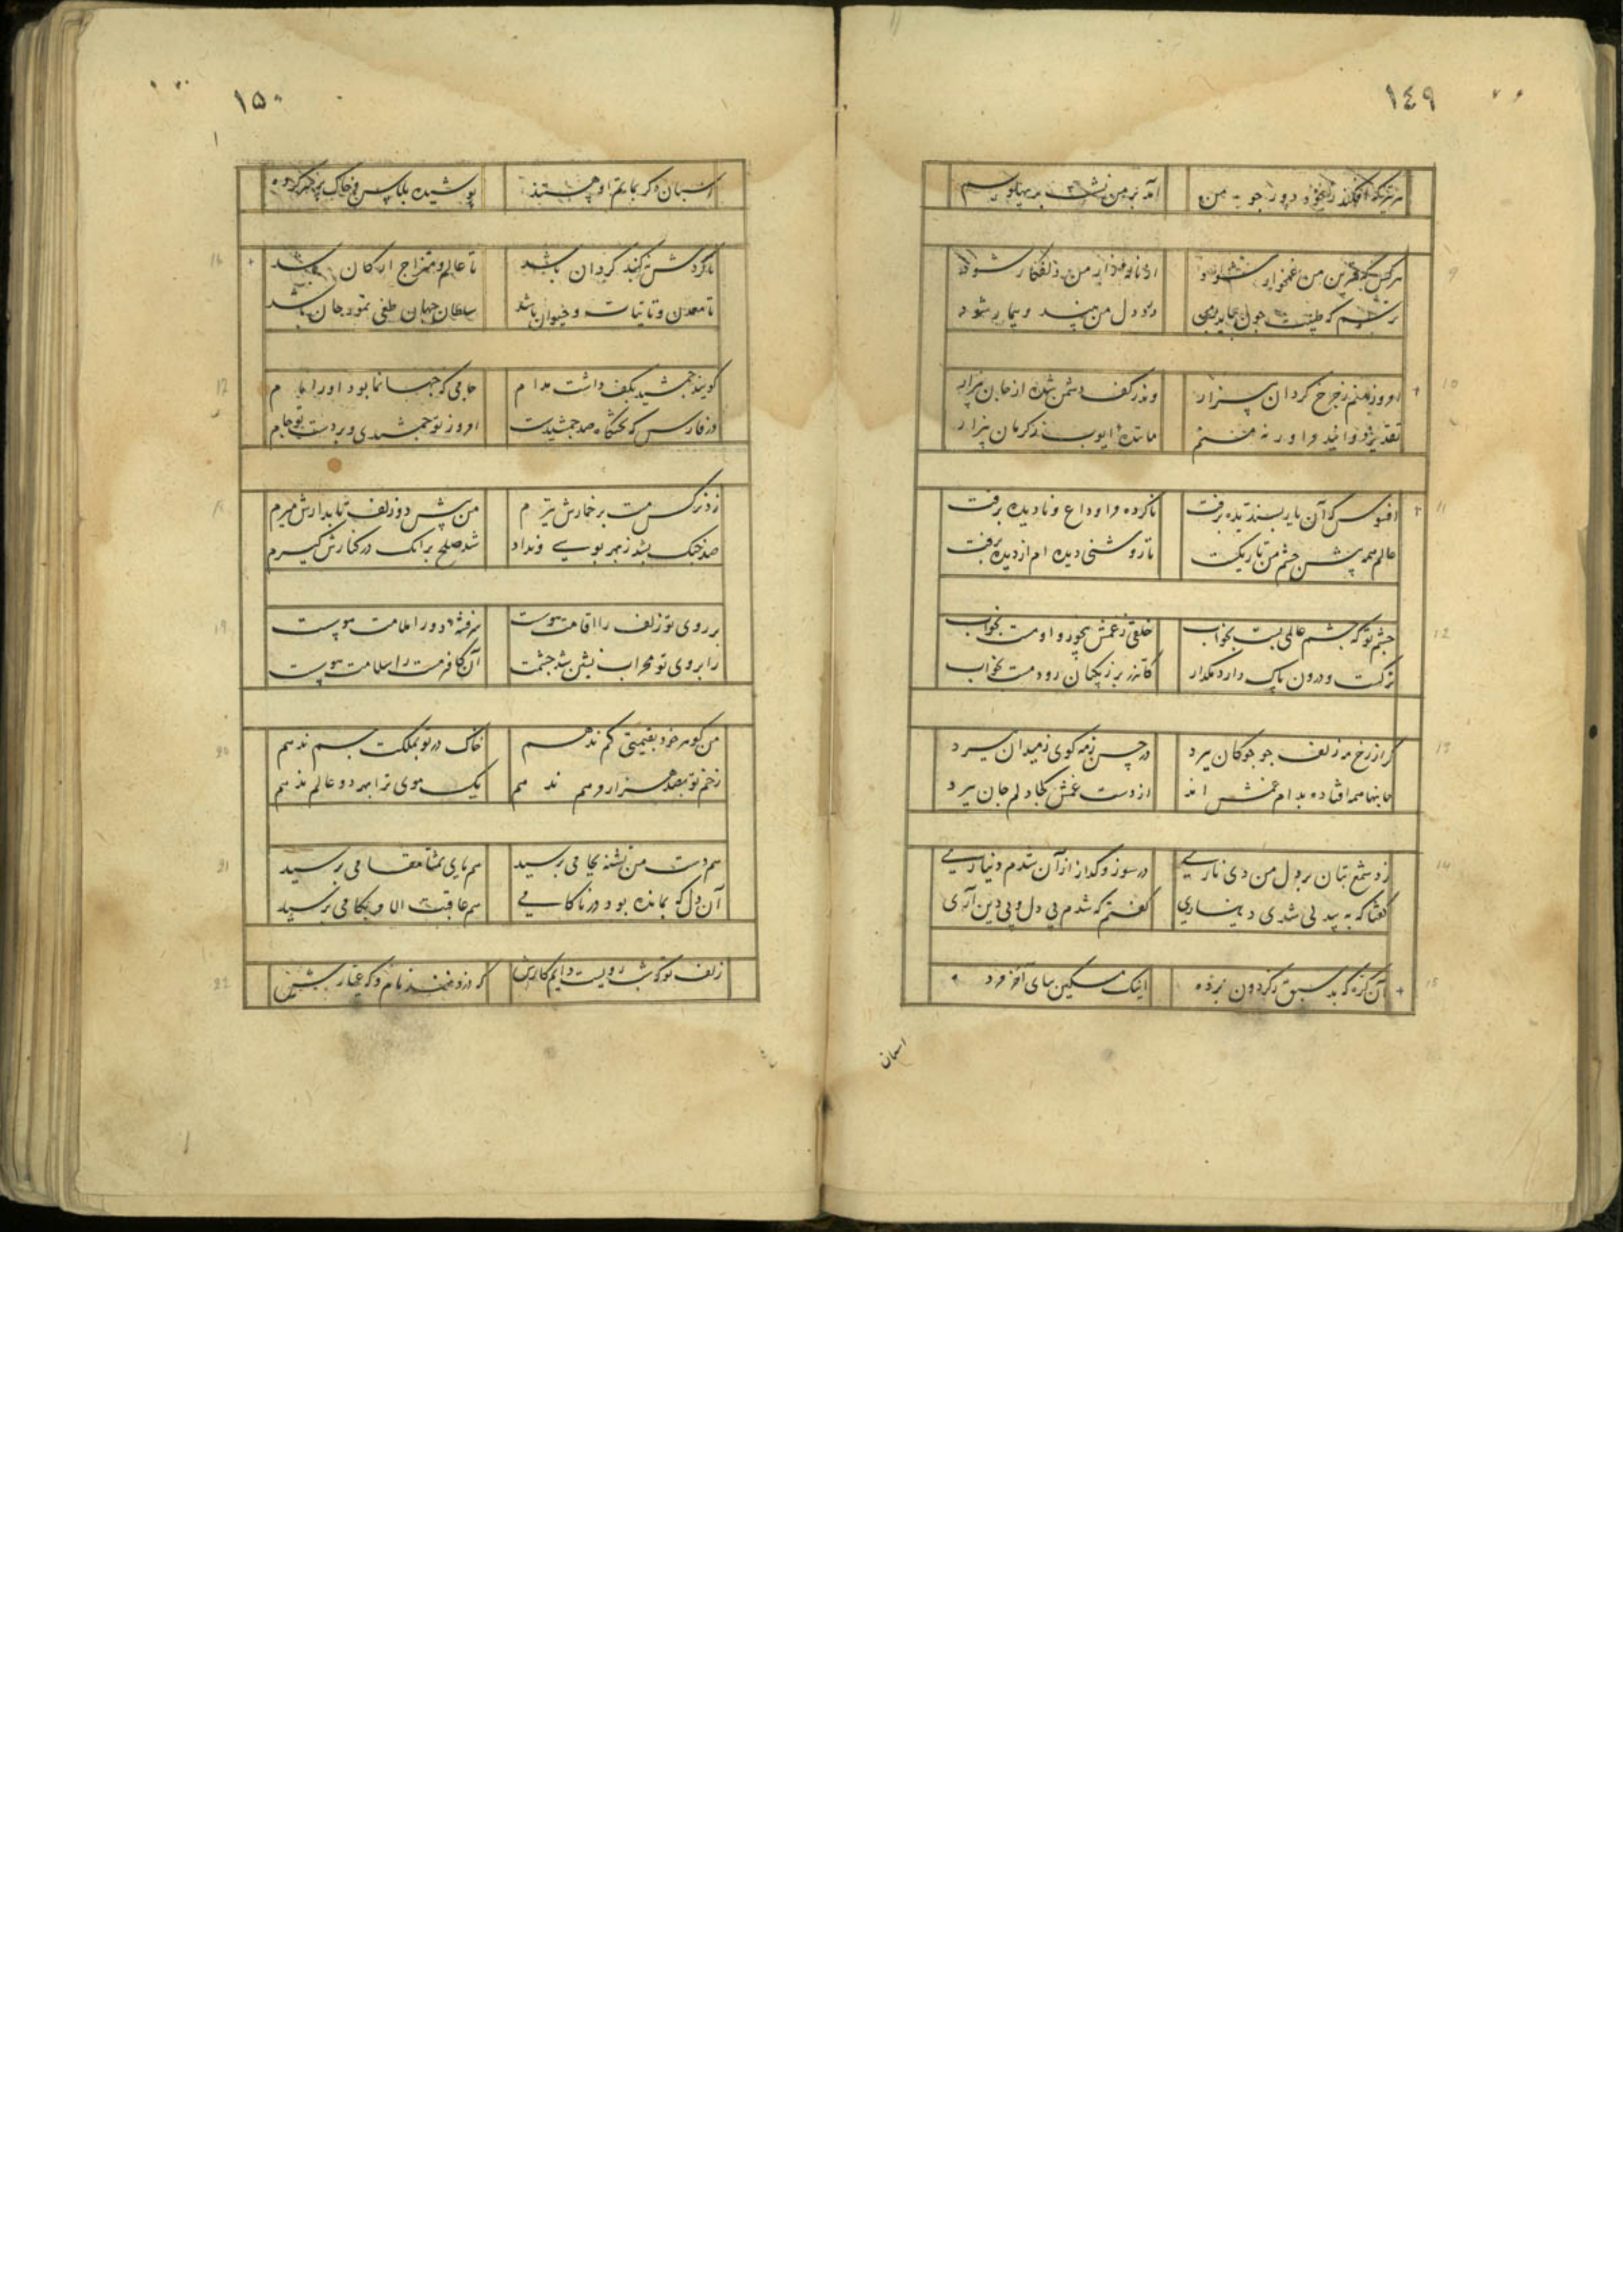 ١٤٩
آمد بر من نشست بر پهلویم
هر کس که قرین من غمخوار شود
از ناله زار من دلفکار شود
امروز منم ز چرخ گردان بیزار
وندر کف دشمن شده از جان بیزار
مانندهٔ ایوب ز کرمان بیزار
افسوس که آن یار پسندیده برفت
ناکرده مرا وداع و نادیده برفت
عالم همه پیش چشم من تاریکست
تا روشنی دیده ام از دیده برفت
چشم تو که چشم عالمی بست بخواب
خلقی ز غمش بیخور و او مست بخواب
ترکست و درون پاک دارد مگذار
کاندر بر زنگیان رود مست بخواب
گر از رخ مه زلف چو چوکان ببرد
در حسن ز مه کوی ز میدان ببرد
جانها همه افتاده بدام غمش اند
از دست غمش کجا دلم جان ببرد
زد شمع بتان بر دل من دی ناری
در سوز و کداز از آن شدم دیناری
کفتا که به بیدلی شدی دیناری
کفتم که شدم بی دل و بی دین آری
آن کره که بد سبق ز کردون برده
اینک مسکین بپای آخر مرده
اسبان
١٥٠
اسبان دکر بماتم او هستند
پوشیده پلاس و خاک بر سر کرده
تا کردش کنبد کردان باشد
تا عالم و امتزاج ارکان باشد
تا معدن و تا نبات و حیوان باشد
سلطان جهان طغی تمور جان باشد
کویند جمشید بکف داشت مدام
جامی که جهان نما بود او را نام
در فارس که تختگاه صد جمشیدست
امروز تو جمشیدی و بر دست تو جام
زد نرکس مست بر خمارش تیرم
من پیش دو زلف تابدارش میرم
صد جنک بشد ز بهر بوسی و نداد
شد صلح بر آنک در کنارش کیرم
بر روی تو زلف را اقامت هوست
سر فتنه دور را ملامت هوست
آن کافر مست را سلامت هوست
من کوهر خود بقیمتی کم ندهم
خاک در تو بملکت جم ندهم
زخم تو بصد هزار مرهم ندهم
یک موی ترا بهر دو عالم ندهم
هم دست من تشنه بجامی برسید
هم پای تمنا بمقامی برسید
آن دل که بمانده بود در ناکامی
هم عاقبت الامر بکامی برسید